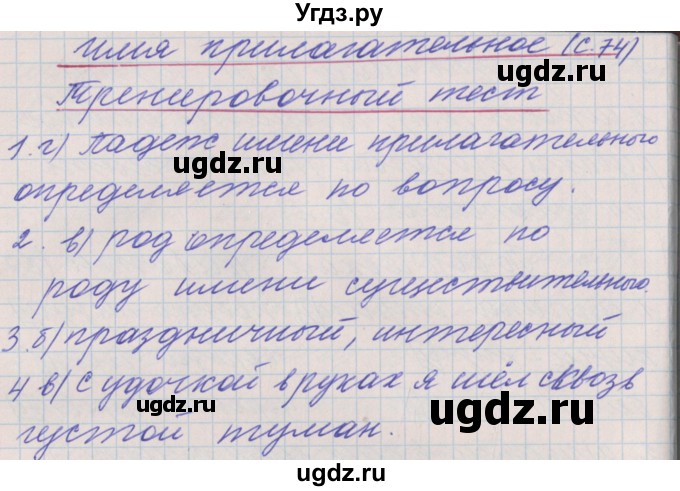 Угдз.ру
Имя прилагательное (с. 74)
Тренировочный тест
1. г) Падеж имени прилагательного
ugdz.ru ugdz.ru
определяется по вопросу.
2. в) род определяется по
ugdz.ru
роду имени существительного.
3. б) праздничный, интересный
4 в) С удочкой в руках я шёл сквозь
ugdz.ru ugdz.ru
густой туман.
ugdz.ru